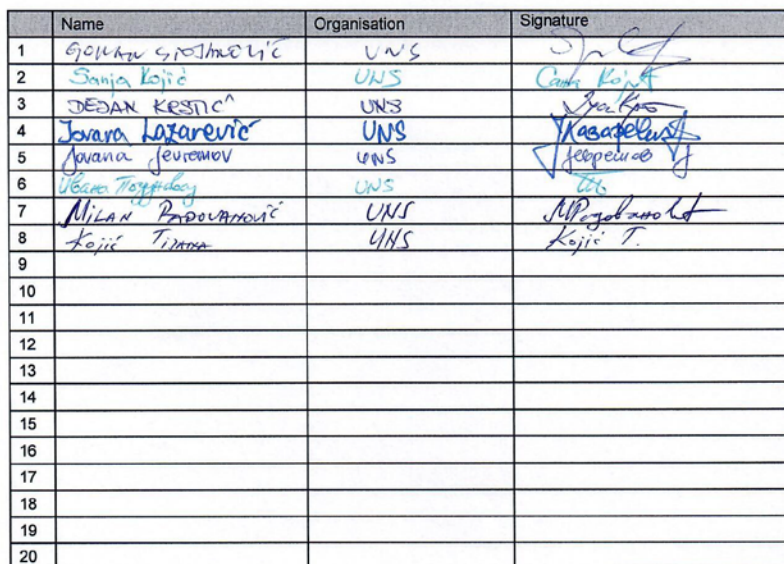 Name Organisation Signature
1 GORAN STOJANOVIĆ UNS
2 Sanja Kojić UNS Сања Којић
3 DEJAN KRSTIĆ UNS
4 Jovana Lazarević UNS Лазаревић
5 Jovana Jevremov UNS Јевремов
6 Ивана UNS
7 MILAN RADOVANOVIĆ UNS МРадовановић
8 Kojić Tijana UNS Kojić T.
9
10
11
12
13
14
15
16
17
18
19
20